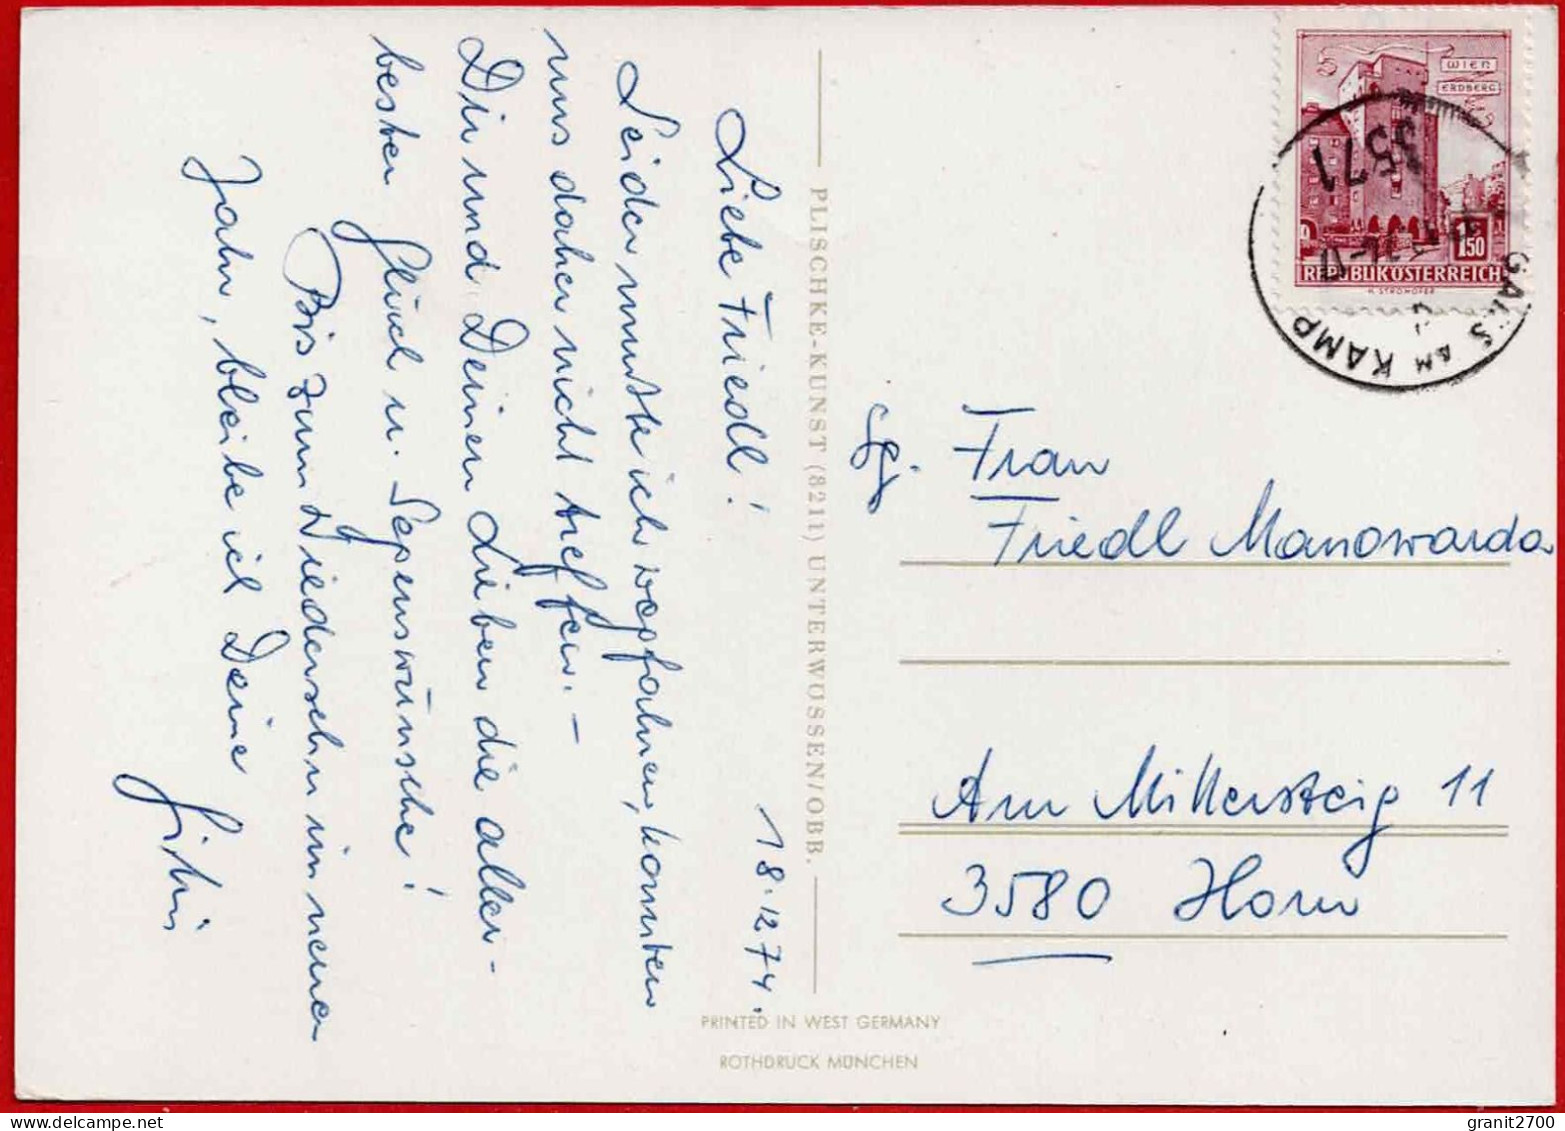 Liebe Friedl!
18.12.74.
Leider musste ich wegfahren, konnten
uns daher nicht treffen. –
Dir und Deinen Lieben die aller-
besten Glück u. Segenswünsche!
Bis zum Wiedersehn im neuen
Jahr, bleibe ich Deine
PLISCHKE-KUNST (8211) UNTERWÖSSEN/OBB.
PRINTED IN WEST GERMANY
ROTHDRUCK MÜNCHEN
WIEN
ERDBERG
1.50
REPUBLIK ÖSTERREICH
H. STROHOFER
3571
GARS AM KAMP
Sg. Frau
Friedl Manowarda
Am Mittersteig 11
3580 Horn
granit2700